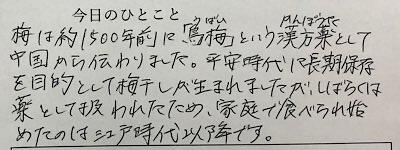 今日のひとこと
梅は約1500年前に「烏梅」という漢方薬として
中国から伝わりました。平安時代に長期保存
を目的として梅干しが生まれましたが、しばらくは
薬として扱われたため、家庭で食べられ始
めたのは江戸時代以降です。